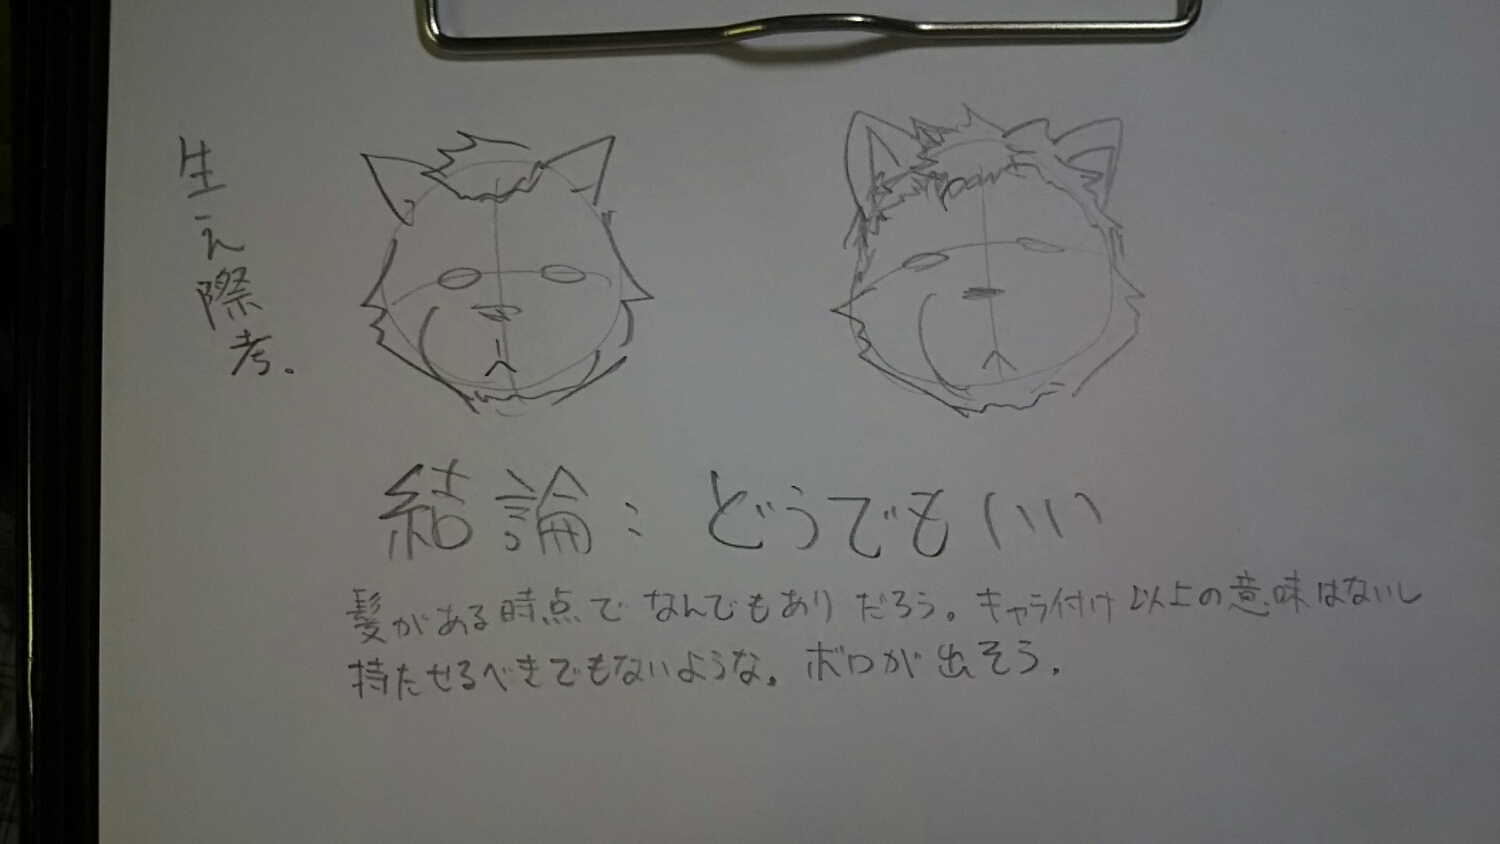 生え際考.
結論：どうでもいい
髪がある時点でなんでもありだろう。キャラ付け以上の意味はないし
持たせるべきでもないような。ボロが出そう.